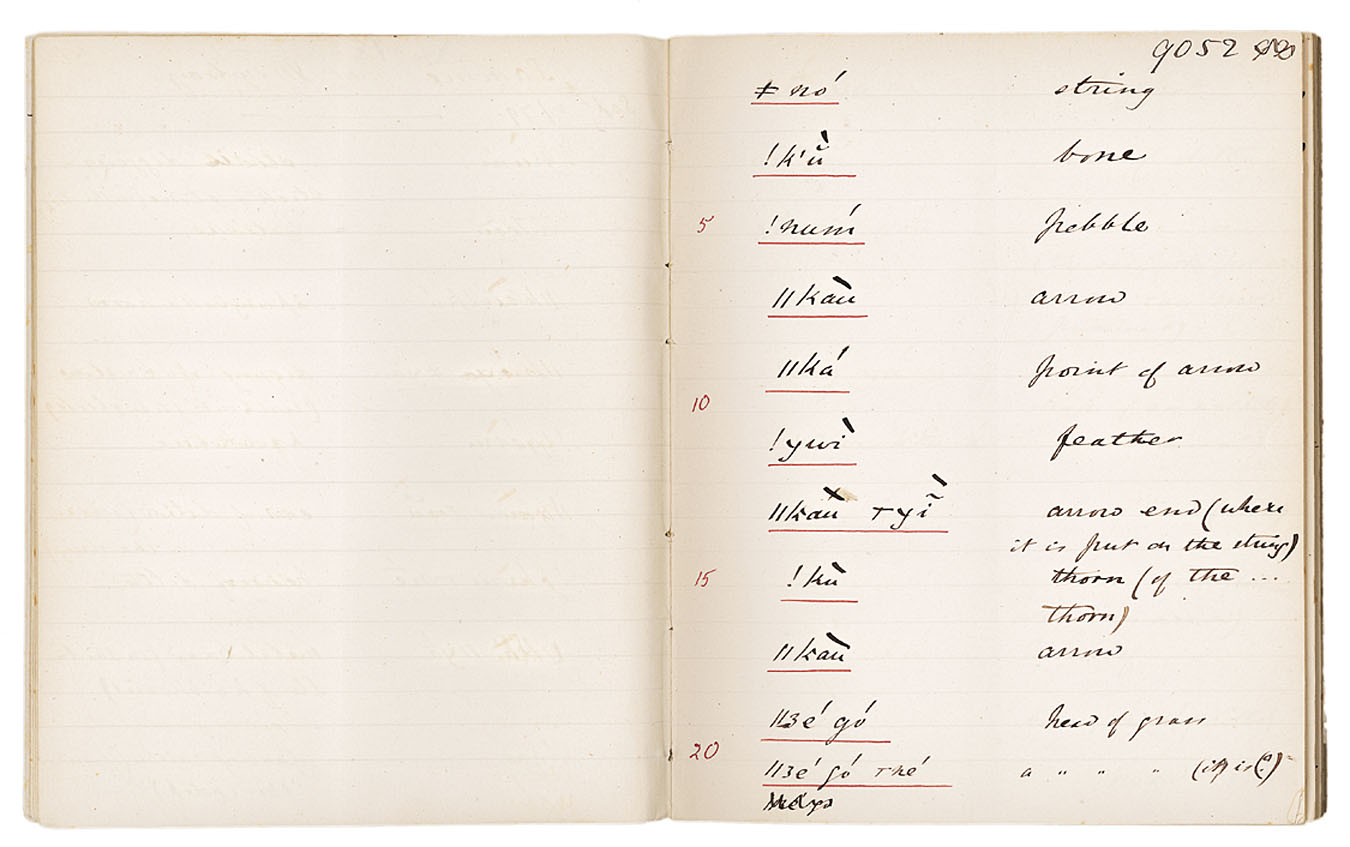 9052
ǂ nó string
!k'ù bone
5 !numí pebble
ǁkàu arrow
ǁká point of arrow
10
!ywì feather
ǁkàu τyĩ̀ arrow end (where
it is put on the string)
15 !kù thorn (of the ...
thorn)
ǁkàu arrow
ǁ3é gó head of grass
20
ǁ3é gó τké a " " " (it) is (?)